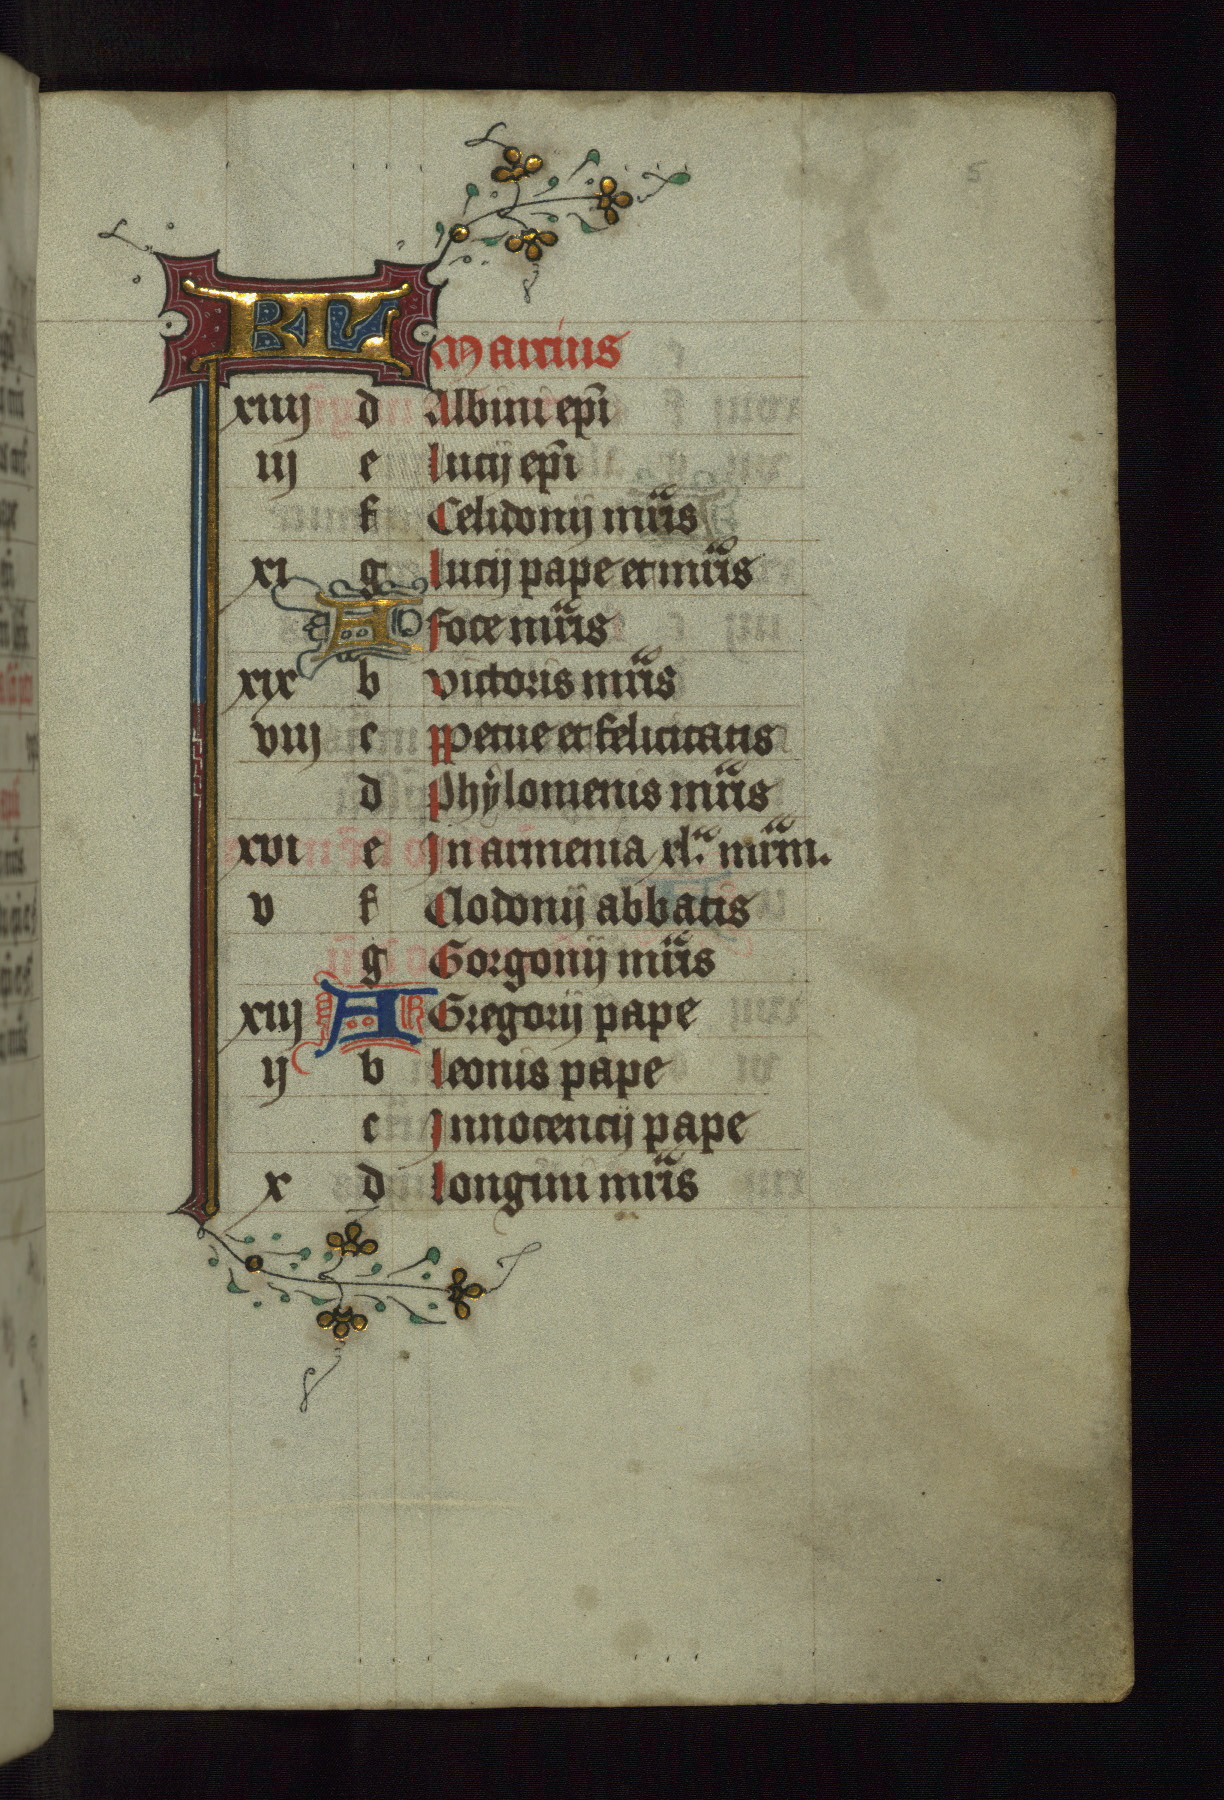 5
KL Marcius
xiiij d Albini ep̃i
iij e lucij ep̃i
f Celidonij mr̃is
xi g lucij pape et mr̃is
A foce mr̃is
xix b victoris mr̃is
viij c ꝑpetue et felicitatis
d Phẏlomenis mr̃is
xvi e Jn armenia xl.ᵃ mr̃m.
v f Clodonij abbatis
g Gorgonij mr̃is
xiij A Gregorij pape
ij b leonis pape
c Jnnocencij pape
x d longini mr̃is